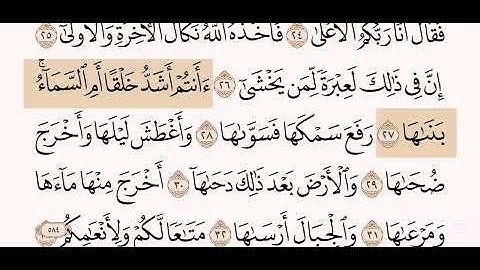 فَقَالَ أَنَا۠ رَبُّكُمُ ٱلْأَعْلَىٰ ٢٤ فَأَخَذَهُ ٱللَّهُ نَكَالَ ٱلْـَٔاخِرَةِ وَٱلْأُولَىٰٓ ٢٥
إِنَّ فِى ذَٰلِكَ لَعِبْرَةً لِّمَن يَخْشَىٰٓ ٢٦ ءَأَنتُمْ أَشَدُّ خَلْقًا أَمِ ٱلسَّمَآءُ ۚ
بَنَىٰهَا ٢٧ رَفَعَ سَمْكَهَا فَسَوَّىٰهَا ٢٨ وَأَغْطَشَ لَيْلَهَا وَأَخْرَجَ
ضُحَىٰهَا ٢٩ وَٱلْأَرْضَ بَعْدَ ذَٰلِكَ دَحَىٰهَآ ٣٠ أَخْرَجَ مِنْهَا مَآءَهَا
وَمَرْعَىٰهَا ٣١ وَٱلْجِبَالَ أَرْسَىٰهَا ٣٢ مَتَٰعًا لَّكُمْ وَلِأَنْعَٰمِكُمْ
٥٨٤